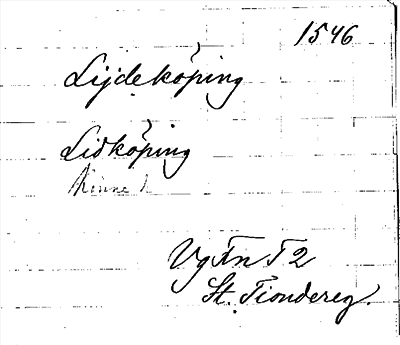 1546
Lijdeköping
Lidköping
Kinne h
Vg Fn 52
St. Tiondereg.